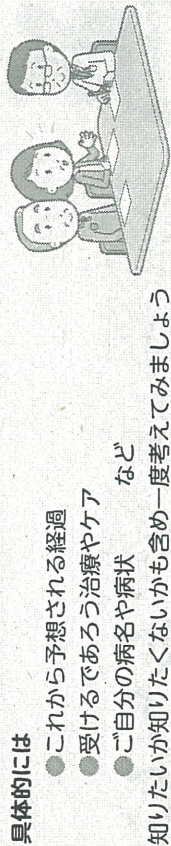 具体的には
●これから予想される経過
●受けるであろう治療やケア
●ご自分の病名や病状 など
知りたいか知りたくないかも含め一度考えてみましょう